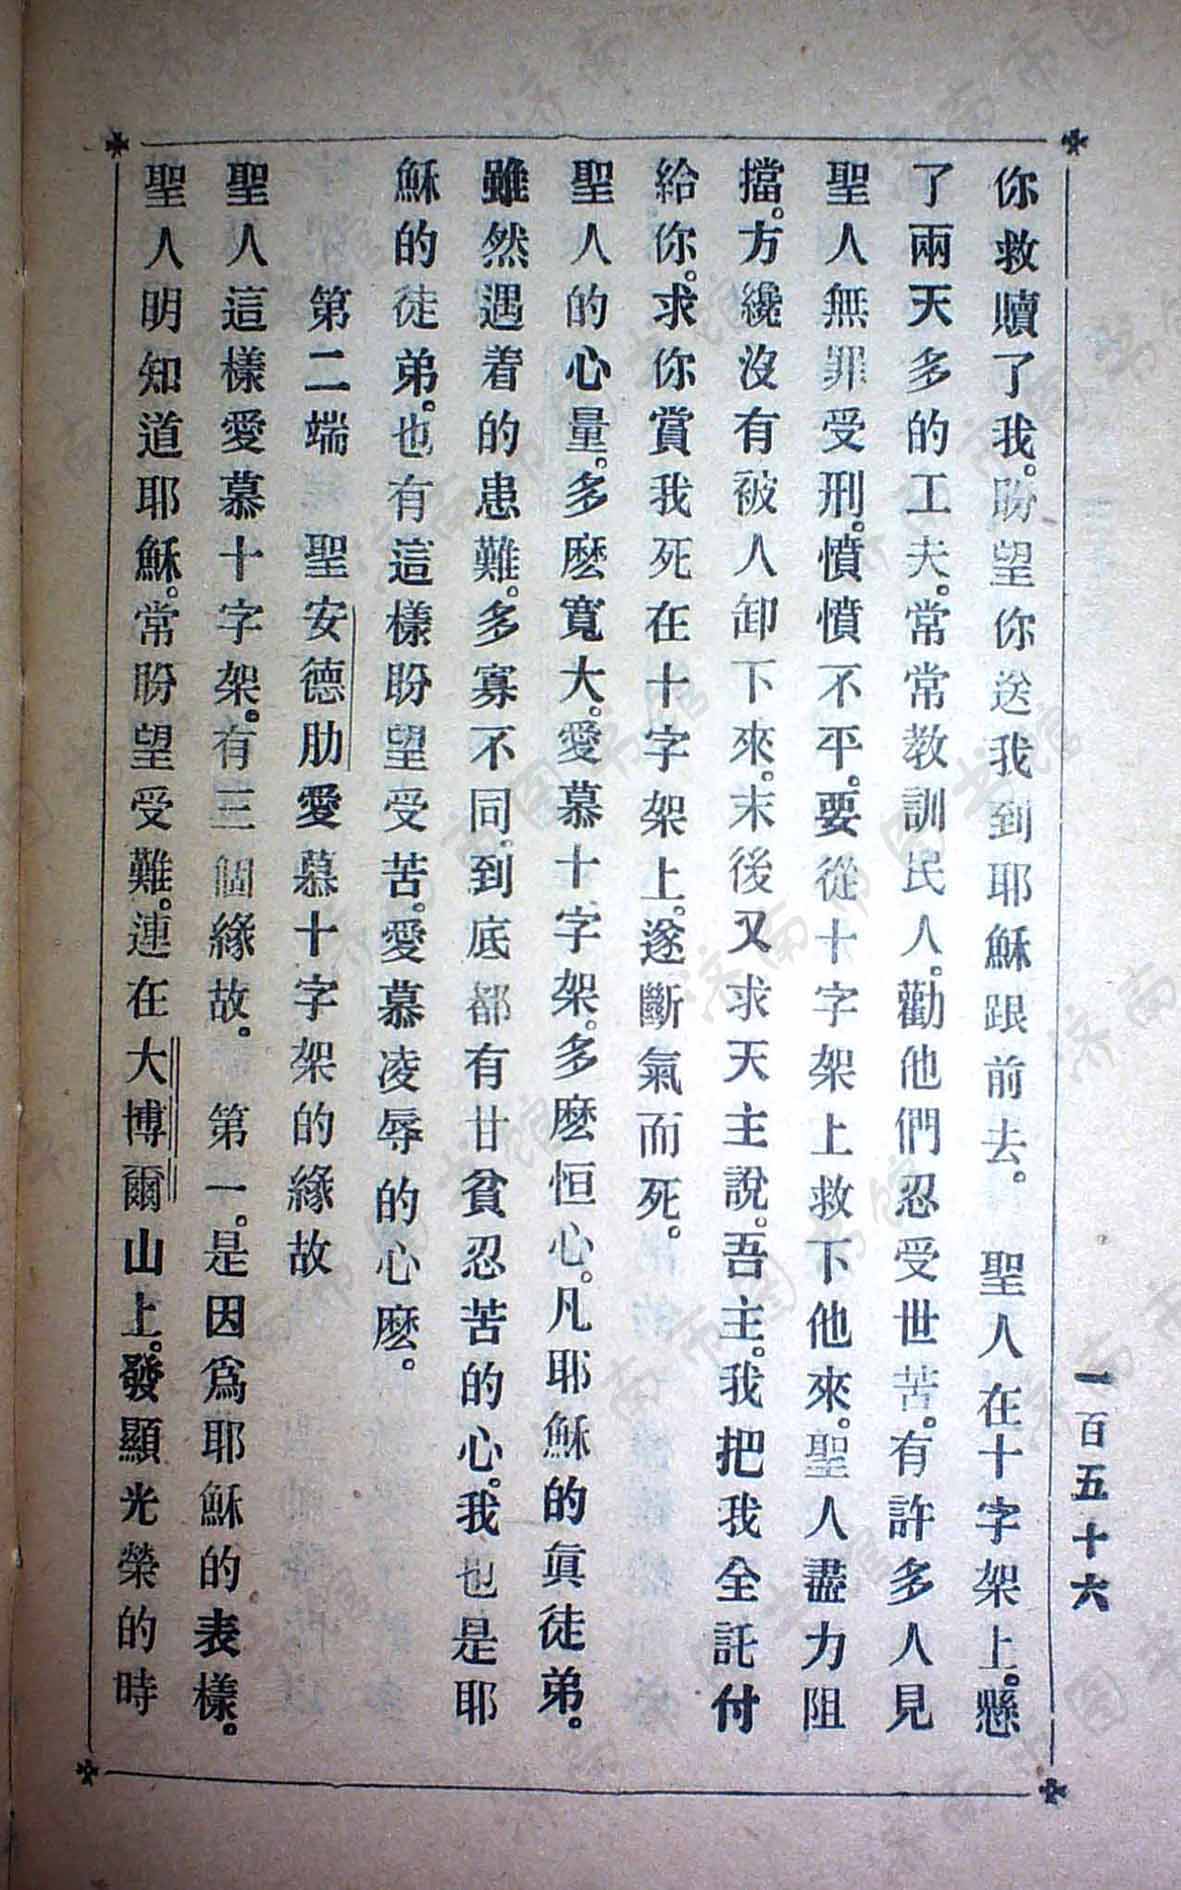 一百五十六
你救贖了我。盼望你送我到耶穌跟前去。　聖人在十字架上。懸
了兩天多的工夫。常常教訓民人。勸他們忍受世苦。有許多人見
聖人無罪受刑。憤憤不平。要從十字架上救下他來。聖人盡力阻
擋。方纔沒有被人卸下來。末後又求天主說。吾主。我把我全託付
給你。求你賞我死在十字架上。遂斷氣而死。
聖人的心量。多麽寬大。愛慕十字架。多麽恒心。凡耶穌的眞徒弟。
雖然遇着的患難。多寡不同。到底都有甘貧忍苦的心。我也是耶
穌的徒弟。也有這樣盼望受苦。愛慕凌辱的心麽。
第二端　聖安德肋愛慕十字架的緣故
聖人這樣愛慕十字架。有三個緣故。　第一。是因爲耶穌的表樣。
聖人明知道耶穌。常盼望受難。連在大博爾山上。發顯光榮的時
济南市图书馆